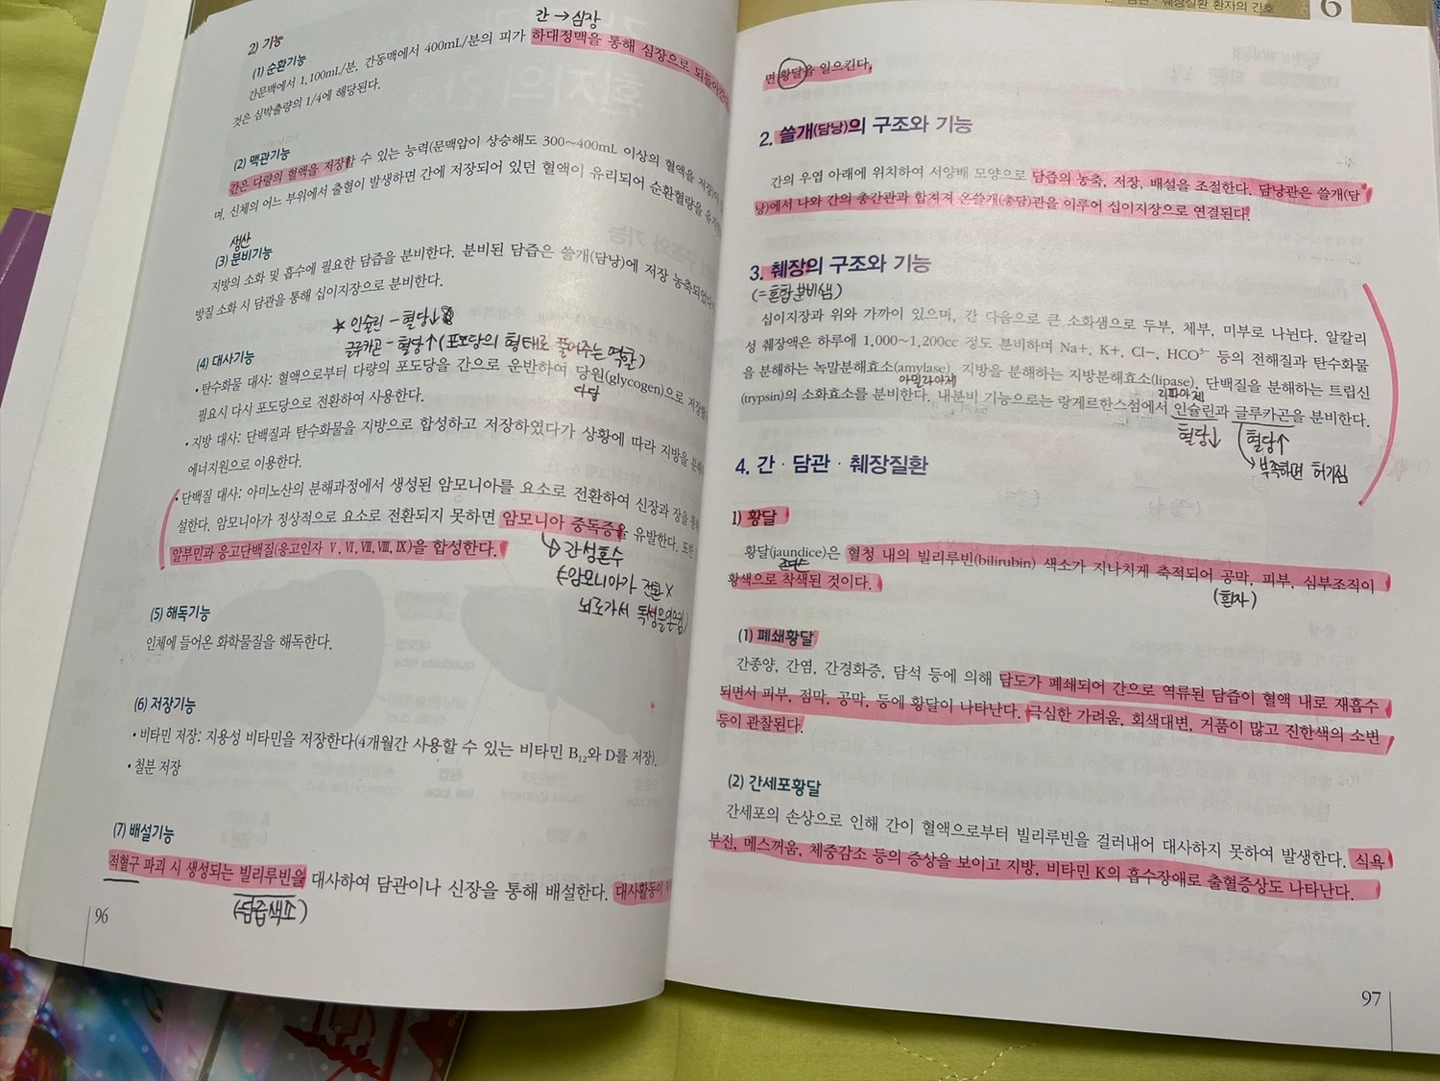 간 → 심장
2) 기능
(1) 순환기능
간문맥에서 1,100mL/분, 간동맥에서 400mL/분의 피가 하대정맥을 통해 심장으로 되돌아간다
것은 심박출량의 1/4에 해당된다.
(2) 맥관기능
간은 다량의 혈액을 저장할 수 있는 능력(문맥압이 상승해도 300~400mL 이상의 혈액을 저장)이
며, 신체의 어느 부위에서 출혈이 발생하면 간에 저장되어 있던 혈액이 유리되어 순환혈량을
생산
(3) 분비기능
지방의 소화 및 흡수에 필요한 담즙을 분비한다. 분비된 담즙은 쓸개(담낭)에 저장 농축되었다가
방질 소화 시 담관을 통해 십이지장으로 분비한다.
★ 인슐린 - 혈당↓
글루카곤 - 혈당↑ (포도당의 형태로 풀어주는 역할)
(4) 대사기능
• 탄수화물 대사: 혈액으로부터 다량의 포도당을 간으로 운반하여 당원(glycogen)으로
필요시 다시 포도당으로 전환하여 사용한다.
• 지방 대사: 단백질과 탄수화물을 지방으로 합성하고 저장하였다가 상황에 따라 지방을
에너지원으로 이용한다.
• 단백질 대사: 아미노산의 분해과정에서 생성된 암모니아를 요소로 전환하여 신장과 장을
설한다. 암모니아가 정상적으로 요소로 전환되지 못하면 암모니아 중독증을 유발한다. 또한
알부민과 응고단백질(응고인자 Ⅴ, Ⅵ, Ⅶ, Ⅷ, Ⅸ)을 합성한다.
↳ 간성혼수
(=암모니아가 전환 X
뇌로가서 독성을
(5) 해독기능
인체에 들어온 화학물질을 해독한다.
(6) 저장기능
• 비타민 저장: 지용성 비타민을 저장한다(4개월간 사용할 수 있는 비타민 B12와 D를 저장).
• 철분 저장
(7) 배설기능
적혈구 파괴 시 생성되는 빌리루빈을 대사하여 담관이나 신장을 통해 배설한다. 대사활동이
(담즙색소)
96
담관·췌장질환 환자의 간호
6
면 황달을 일으킨다.
2. 쓸개(담낭)의 구조와 기능
간의 우엽 아래에 위치하여 서양배 모양으로 담즙의 농축, 저장, 배설을 조절한다. 담낭관은 쓸개(담
낭)에서 나와 간의 총간관과 합쳐져 온쓸개(총담)관을 이루어 십이지장으로 연결된다.
3. 췌장의 구조와 기능
(=혼합분비샘)
십이지장과 위와 가까이 있으며, 간 다음으로 큰 소화샘으로 두부, 체부, 미부로 나뉜다. 알칼리
성 췌장액은 하루에 1,000~1,200cc 정도 분비하며 Na+, K+, Cl-, HCO3- 등의 전해질과 탄수화물
을 분해하는 녹말분해효소(amylase), 지방을 분해하는 지방분해효소(lipase), 단백질을 분해하는 트립신
아밀라아제
리파아제
(trypsin)의 소화효소를 분비한다. 내분비 기능으로는 랑게르한스섬에서 인슐린과 글루카곤을 분비한다.
혈당↓
혈당↑
→ 부족하면 허기짐
4. 간·담관·췌장질환
1) 황달
황달(jaundice)은 혈청 내의 빌리루빈(bilirubin) 색소가 지나치게 축적되어 공막, 피부, 심부조직이
황색으로 착색된 것이다.
(흰자)
(1) 폐쇄황달
간종양, 간염, 간경화증, 담석 등에 의해 담도가 폐쇄되어 간으로 역류된 담즙이 혈액 내로 재흡수
되면서 피부, 점막, 공막, 등에 황달이 나타난다. 극심한 가려움, 회색대변, 거품이 많고 진한색의 소변
등이 관찰된다.
(2) 간세포황달
간세포의 손상으로 인해 간이 혈액으로부터 빌리루빈을 걸러내어 대사하지 못하여 발생한다. 식욕
부진, 메스꺼움, 체중감소 등의 증상을 보이고 지방, 비타민 K의 흡수장애로 출혈증상도 나타난다.
97